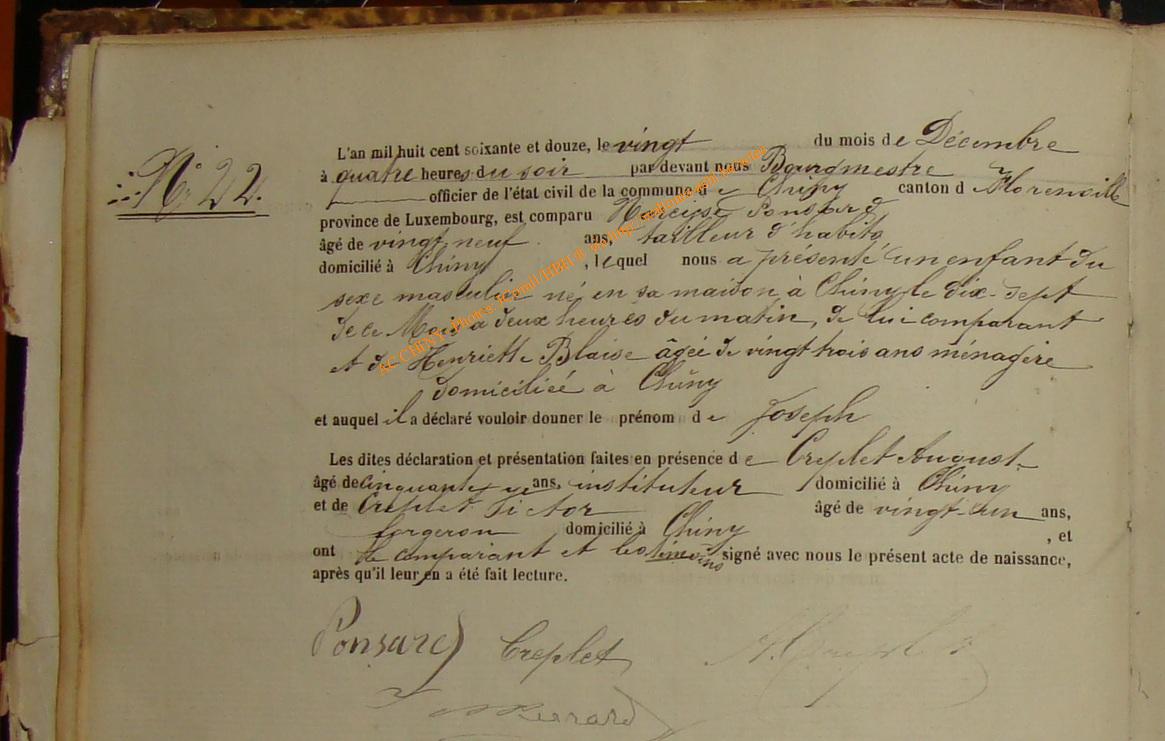 N° 22.
L'an mil huit cent soixante et douze, le vingt du mois de Décembre
à quatre heures du soir par devant nous Bourgmestre
officier de l'état civil de la commune de Chiny canton d Florenville
province de Luxembourg, est comparu Narcisse Ponsard
âgé de vingt neuf ans, tailleur d'habits
domicilié à Chiny, lequel nous a présenté un enfant du
sexe masculin né en sa maison à Chiny le dix-sept
de ce Mois à deux heures du matin, de lui comparant
et de Henriette Blaise âgée de vingt trois ans ménagère
domiciliée à Chiny
et auquel il a déclaré vouloir donner le prénom de Joseph
Les dites déclaration et présentation faites en présence de Creplet August
âgé de cinquante ans, instituteur domicilié à Chiny
et de Creplet Victor âgé de vingt-un ans,
forgeron domicilié à Chiny, et
ont le comparant et les témoins signé avec nous le présent acte de naissance,
après qu'il leur en a été fait lecture.
Ponsard Creplet A. Creplet